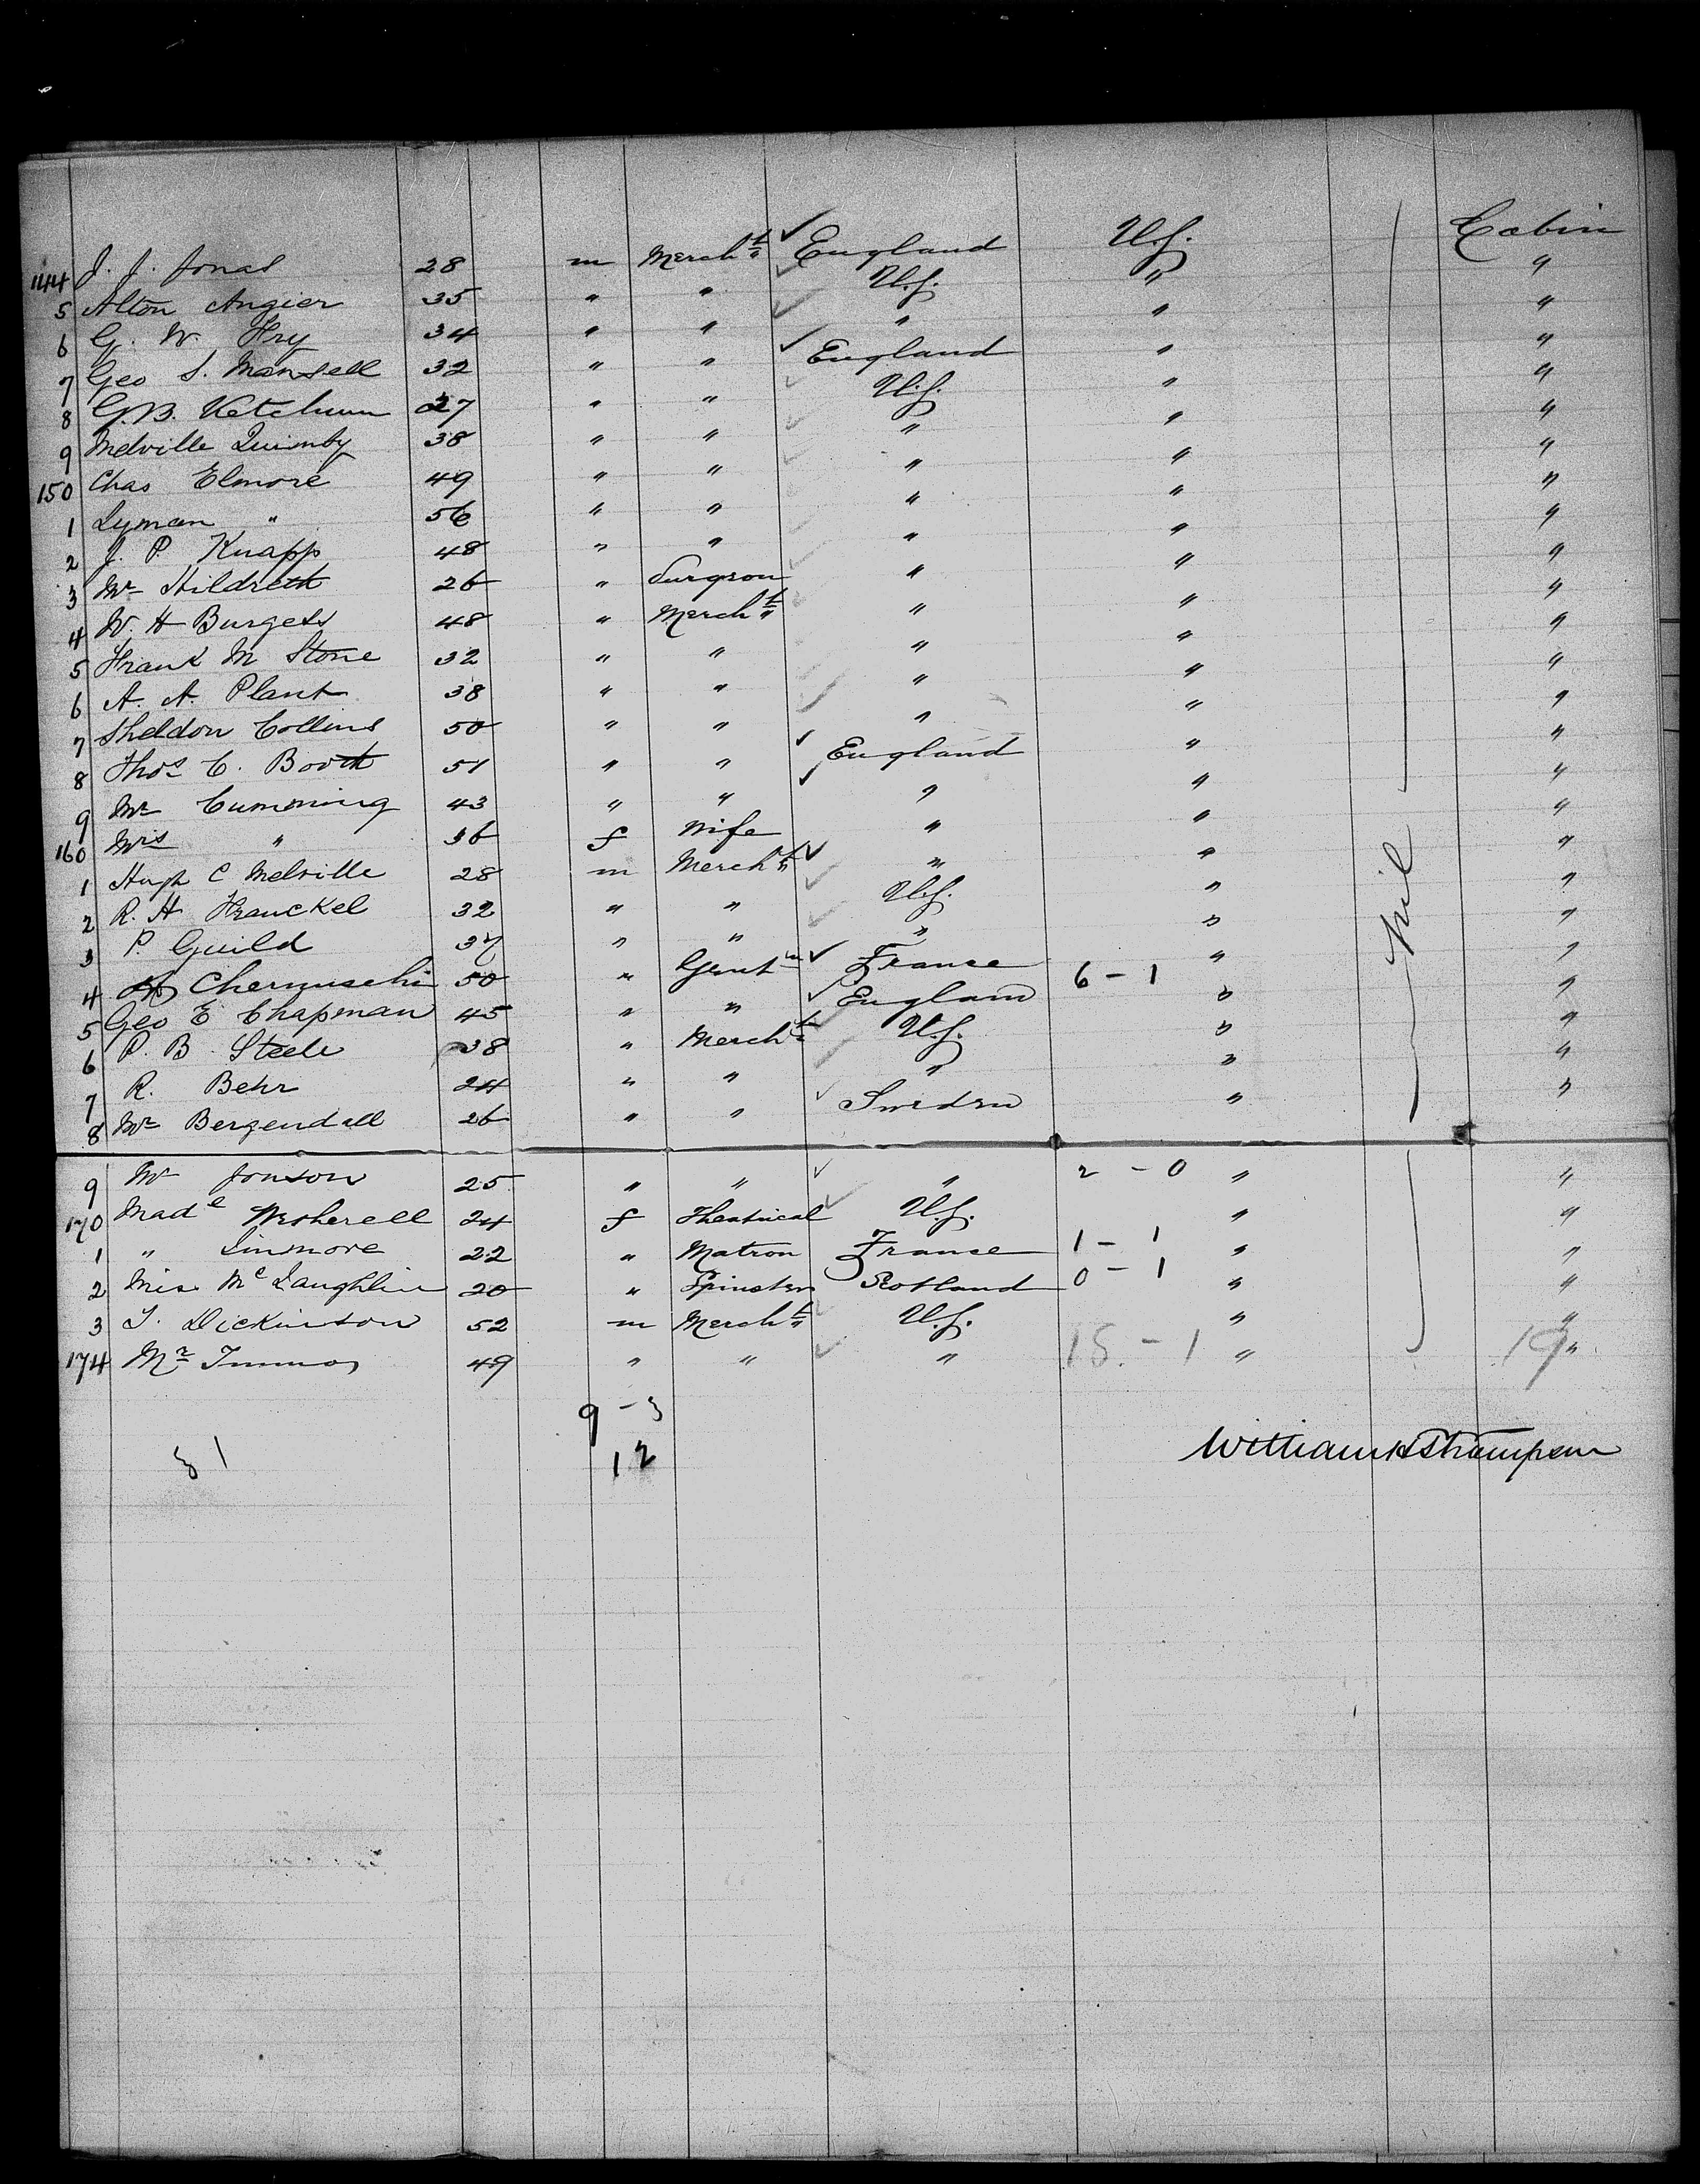 144 J. J. Jonas 28 m Mercht England U.S. Cabin
5 Alton Angier 35 " " U.S. " "
6 G. W. Fry 34 " " " " "
7 Geo S. Mansell 32 " " England " "
8 G.B. Ketchum 27 " " U.S. " "
9 Melville Quimby 38 " " " " "
150 Chas Elmore 49 " " " " "
1 Lyman " 56 " " " " "
2 J. P Knapp 48 " " " " "
3 Mr Hildreth 26 " Surgeon " " "
4 W. H Burgess 48 " Mercht " " "
5 Frank M Stone 32 " " " " "
6 A. A. Plant 38 " " " " "
7 Sheldon Collins 50 " " " " "
8 Thos C. Booth 51 " " England " "
9 Mr Cumming 43 " " " " "
160 Mrs " 36 f Wife " " "
1 Hugh C Melville 28 m Mercht " " "
2 R. H Franckel 32 " " U.S. " "
3 P. Guild 37 " " " " "
4 Chernuschi 50 " Gentn France 6 - 1 " "
5 Geo E Chapman 45 " " England " "
6 P. B Steele 38 " Mercht U.S. " "
7 R. Behr 24 " " " " "
8 Mr Bergendall 26 " " Sweden " "
nil
9 Mr Jonson 25 " " " 2 - 0 " "
170 Made Wetherell 24 f Theatrical U.S. " "
1 " Linmore 22 " Matron France 1 - 1 " "
2 Miss McLaughlin 20 " Spinster Scotland 0 - 1 " "
3 T. Dickinson 52 m Mercht U.S. " "
174 Mr 49 " " " 15 - 1 " 19 "
9 - 3
31 12
William H Thompson